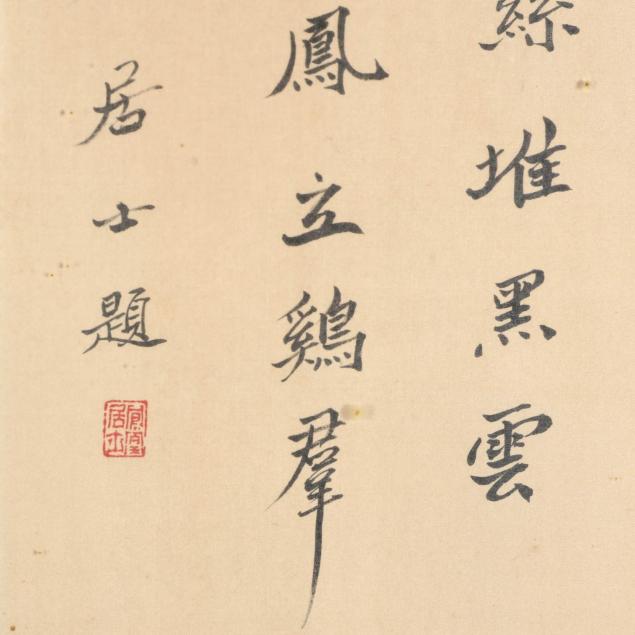 絲堆黑雲
鳳立鷄羣
居士題
居士